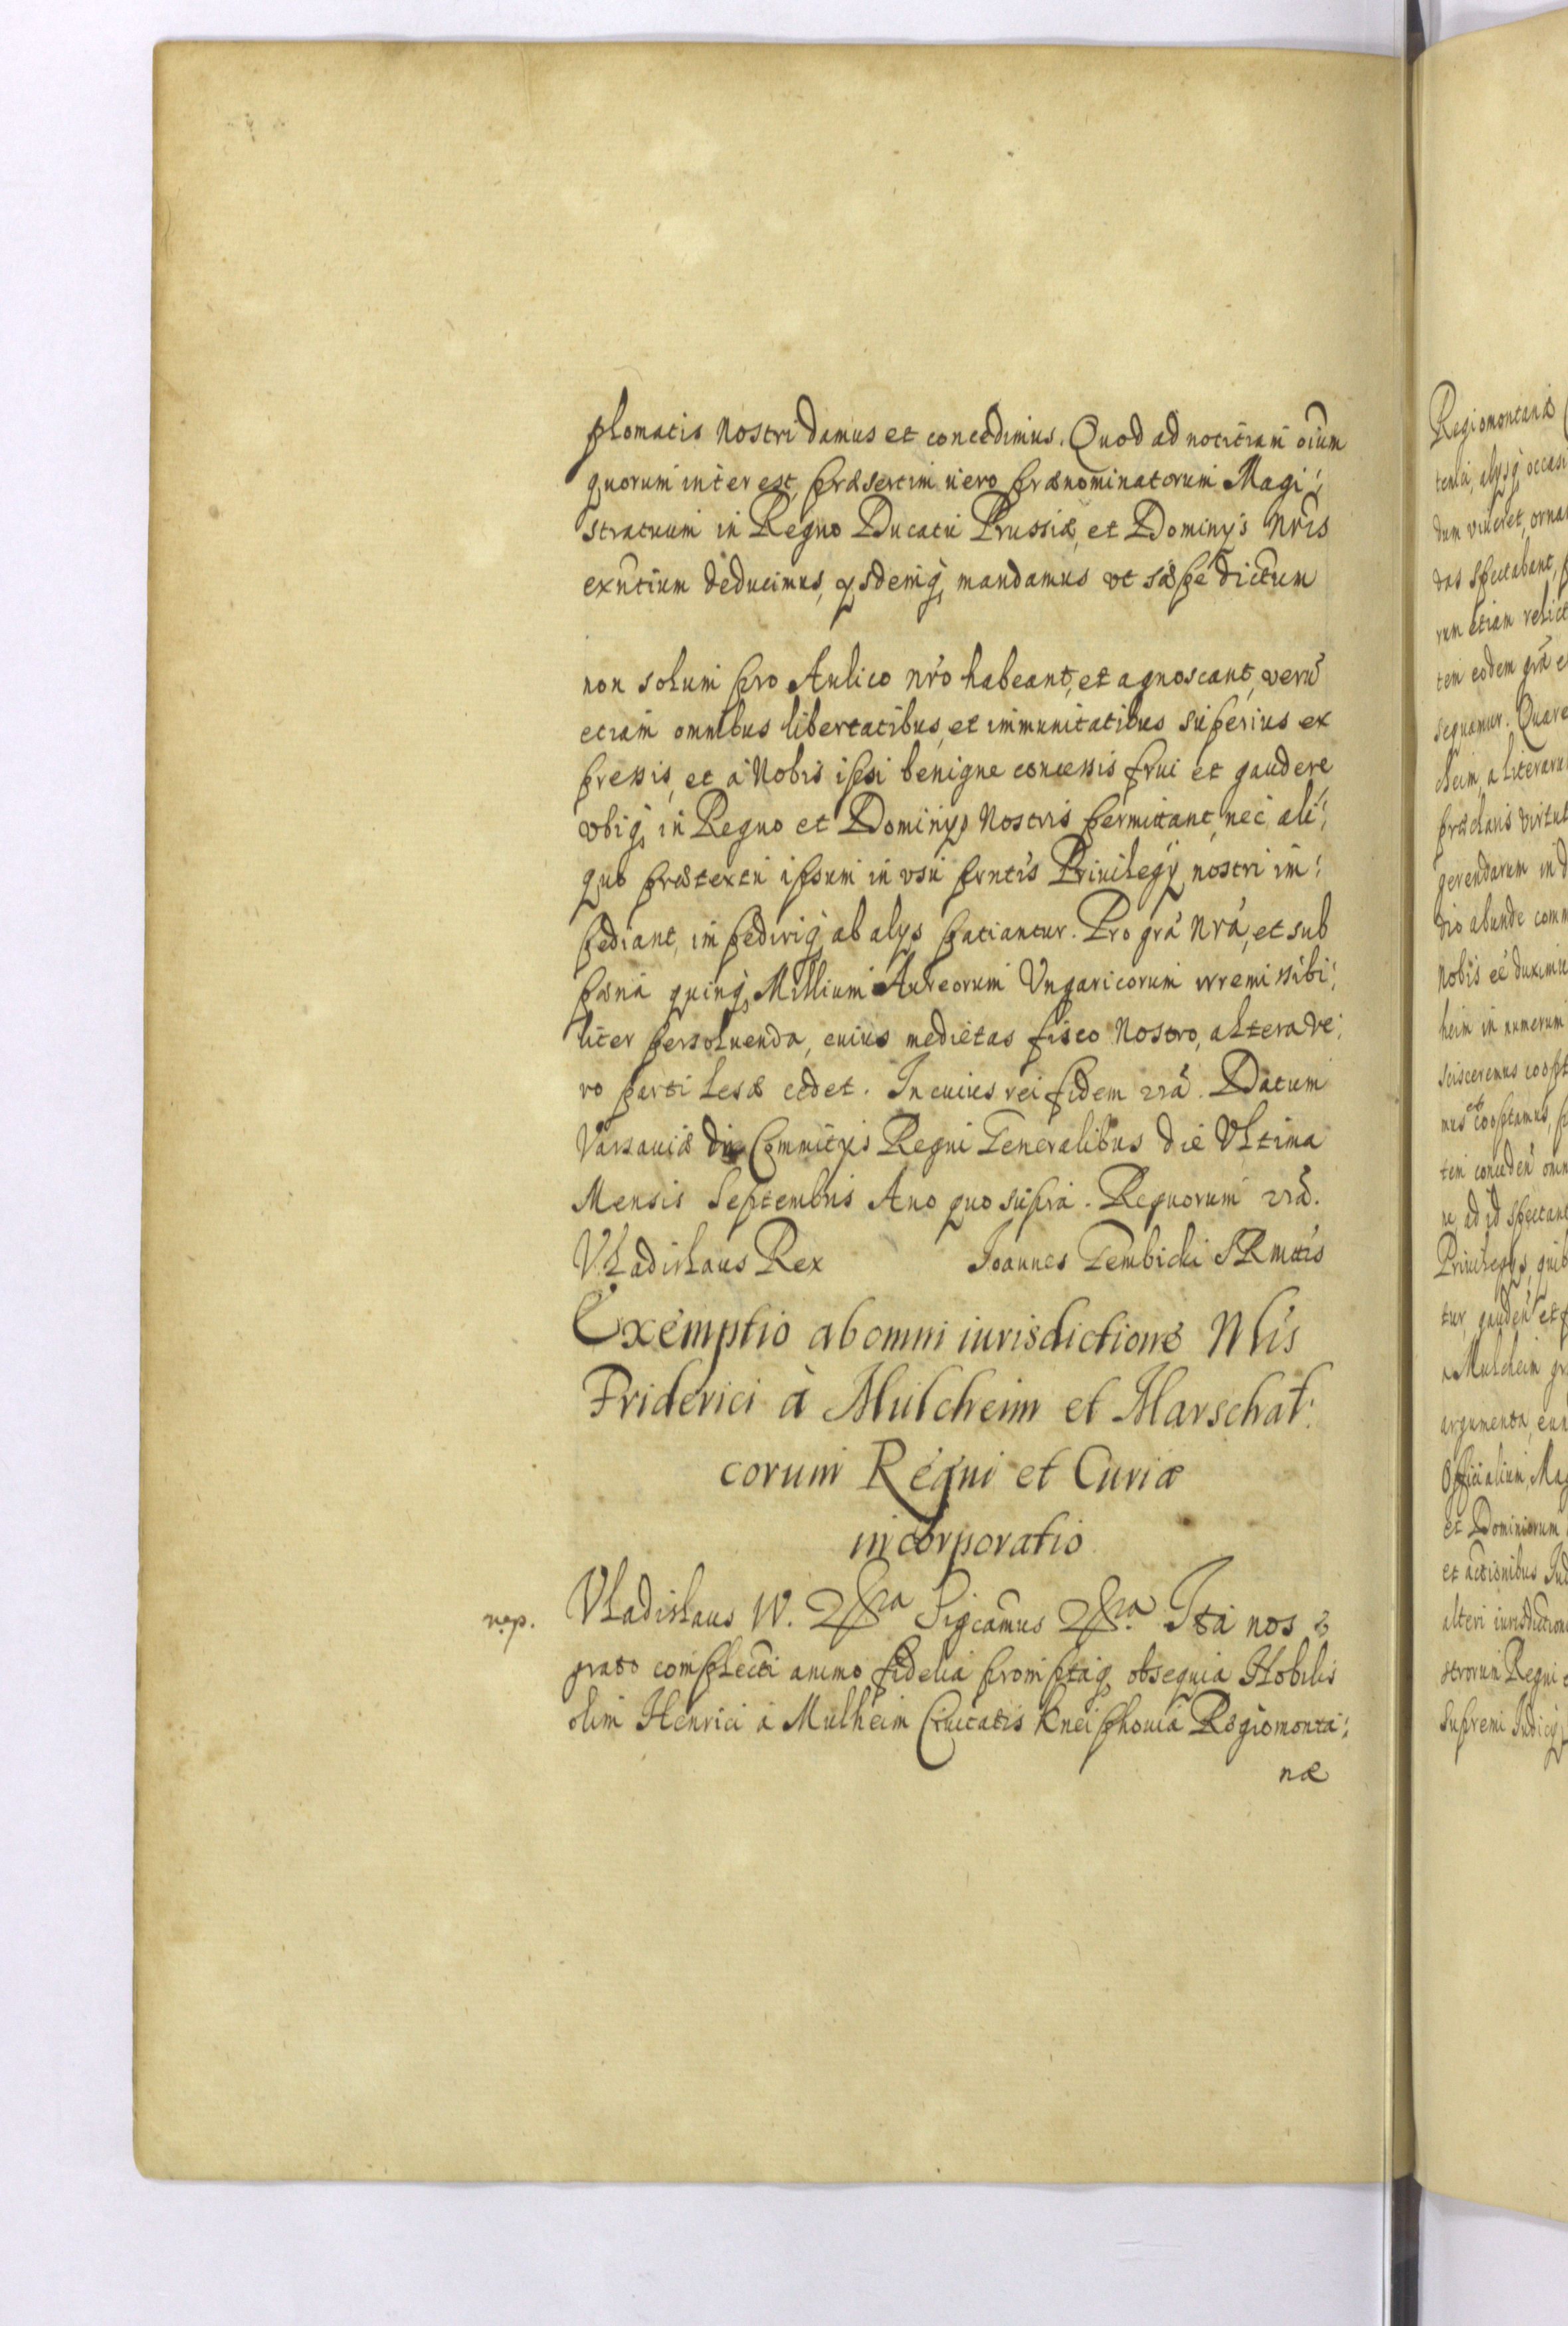 plomatis Nostri damus et concedimus. Quod ad notitiam oium
quorum interest, præsertim vero prænominatorum Magi:
stratuum in Regno Ducatu Prussiæ, et Dominys Nris
exntium deducimus, ysdemq, mandamus vt sæpe dictum
non solum pro Aulico nro habeant, et agnoscant, verũ
etiam omnibus libertatibus, et immunitatibus superius ex
pressis, et à Nobis ipsi benigne concessis frui et gaudere
vbiq, in Regno et Dominys Nostris permittant, nec ali:
quo prætextu ipsum in vsu pntis Priuilegy nostri im:
pediant, impediriq, ab alys patiantur. Pro gra nra, et sub
pæna quinq, Millium Aureorum Vngaricorum irremissibi:
liter persoluenda, cuius medietas fisco Nostro, altera ve:
ro parti lesæ cedet. In cuius rei fidem rrã. Datum
Varsauiæ Commitys Regni Generalibus die Vltima
Mensis Septembris Ano quo supra. Regnorum rrã.
Vladislaus Rex Joannes Gembicki SRMttis
Exemptio ab omni iurisdictione Nlis
Friderici à Mulcheim et Marschal:
corum Regni et Curiæ
incorporatio
Vladislaus IV. &ra Sigcamus &ra. Ita nos
grato complecti animo fidelia promptaq, obsequia Nobilis
olim Henrici à Mulheim Ciuitatis Kneiphouia Regiomonta:
næ
Regiomontanæ
dum viueret, orna
das spectabant, p
rum etiam relict
tem eodem grã e
sequamur. Quare
cheim, a literaru
præclaris virtut
gerendarum in d
dio abunde comm
Nobis eê duximu
heim in numerum
scisceremus coopt
mus et cooptamus, p
tem conceden omn
ne ad id spectant
Priuilegys, quib
tur, gauden et f
a Mulcheim gr
argumenta, eun
Officialium, Mag
et Dominiorum
et actionibus Jud
alteri iurisdiction
strorum Regni e
Supremi Judicy